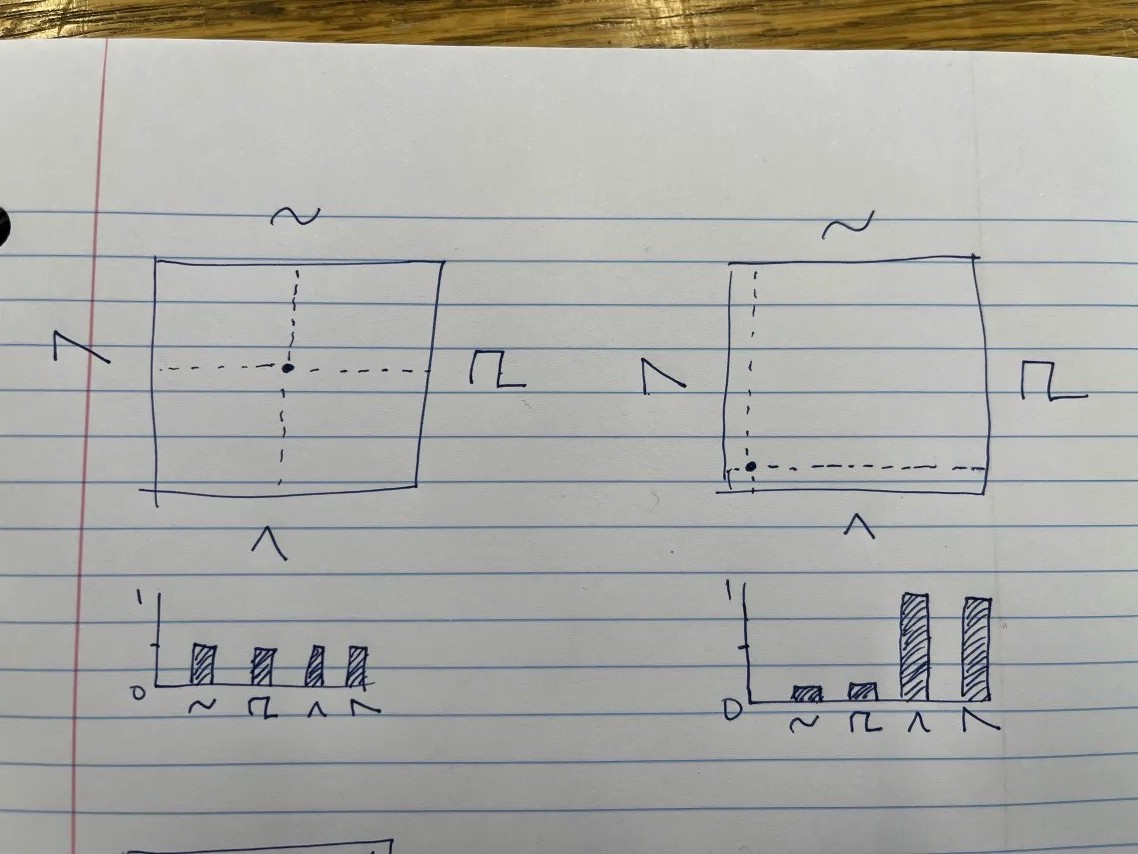 1
0
1
0